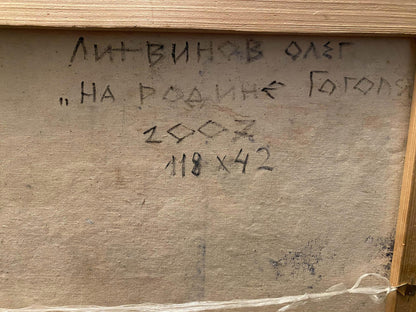 ЛИТВИНОВ ОЛЕГ
„НА РОДИНЕ ГОГОЛЯ
2007
118 x 42